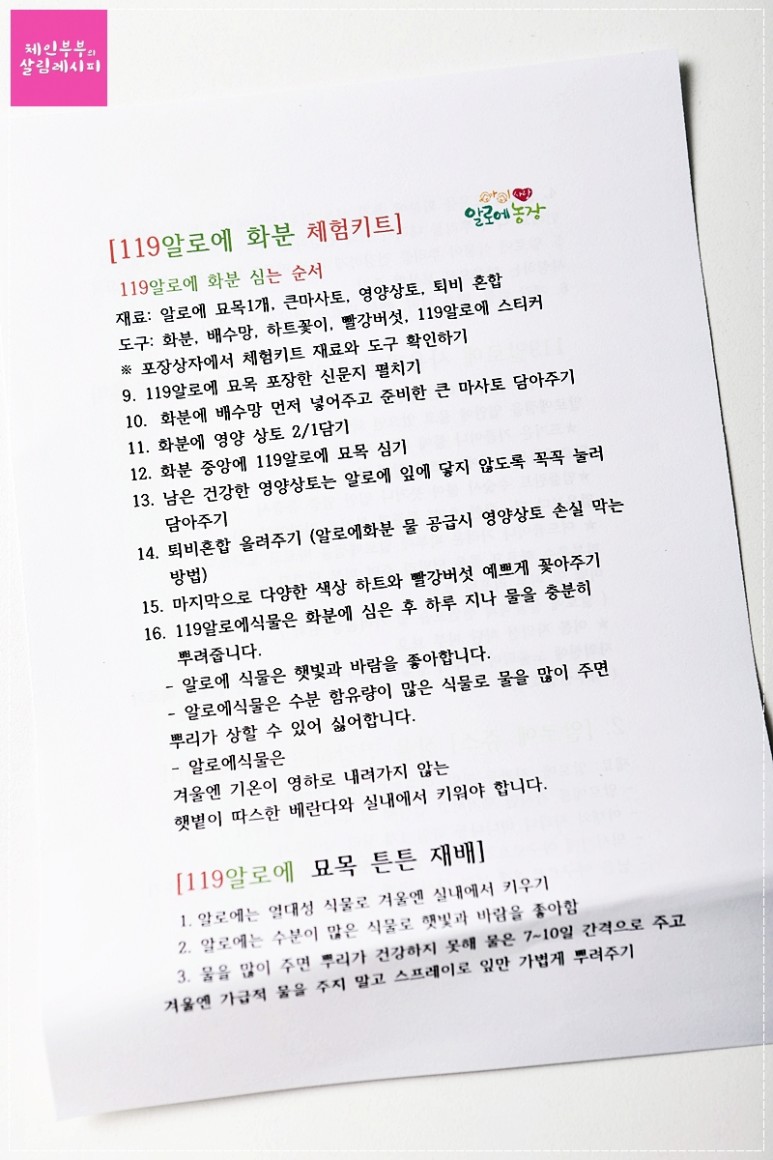 체인부부의
살림레시피
아이사랑
알로에농장
[119알로에 화분 체험키트]
119알로에 화분 심는 순서
재료: 알로에 묘목1개, 큰마사토, 영양상토, 퇴비 혼합
도구: 화분, 배수망, 하트꽃이, 빨강버섯, 119알로에 스티커
※ 포장상자에서 체험키트 재료와 도구 확인하기
9. 119알로에 묘목 포장한 신문지 펼치기
10. 화분에 배수망 먼저 넣어주고 준비한 큰 마사토 담아주기
11. 화분에 영양 상토 2/1담기
12. 화분 중앙에 119알로에 묘목 심기
13. 남은 건강한 영양상토는 알로에 잎에 닿지 않도록 꼭꼭 눌러
담아주기
14. 퇴비혼합 올려주기 (알로에화분 물 공급시 영양상토 손실 막는
방법)
15. 마지막으로 다양한 색상 하트와 빨강버섯 예쁘게 꽃아주기
16. 119알로에식물은 화분에 심은 후 하루 지나 물을 충분히
뿌려줍니다.
- 알로에 식물은 햇빛과 바람을 좋아합니다.
- 알로에식물은 수분 함유량이 많은 식물로 물을 많이 주면
뿌리가 상할 수 있어 싫어합니다.
- 알로에식물은
겨울엔 기온이 영하로 내려가지 않는
햇볕이 따스한 베란다와 실내에서 키워야 합니다.
[119알로에 묘목 튼튼 재배]
1. 알로에는 열대성 식물로 겨울엔 실내에서 키우기
2. 알로에는 수분이 많은 식물로 햇빛과 바람을 좋아함
3. 물을 많이 주면 뿌리가 건강하지 못해 물은 7~10일 간격으로 주고
겨울엔 가급적 물을 주지 말고 스프레이로 잎만 가볍게 뿌려주기